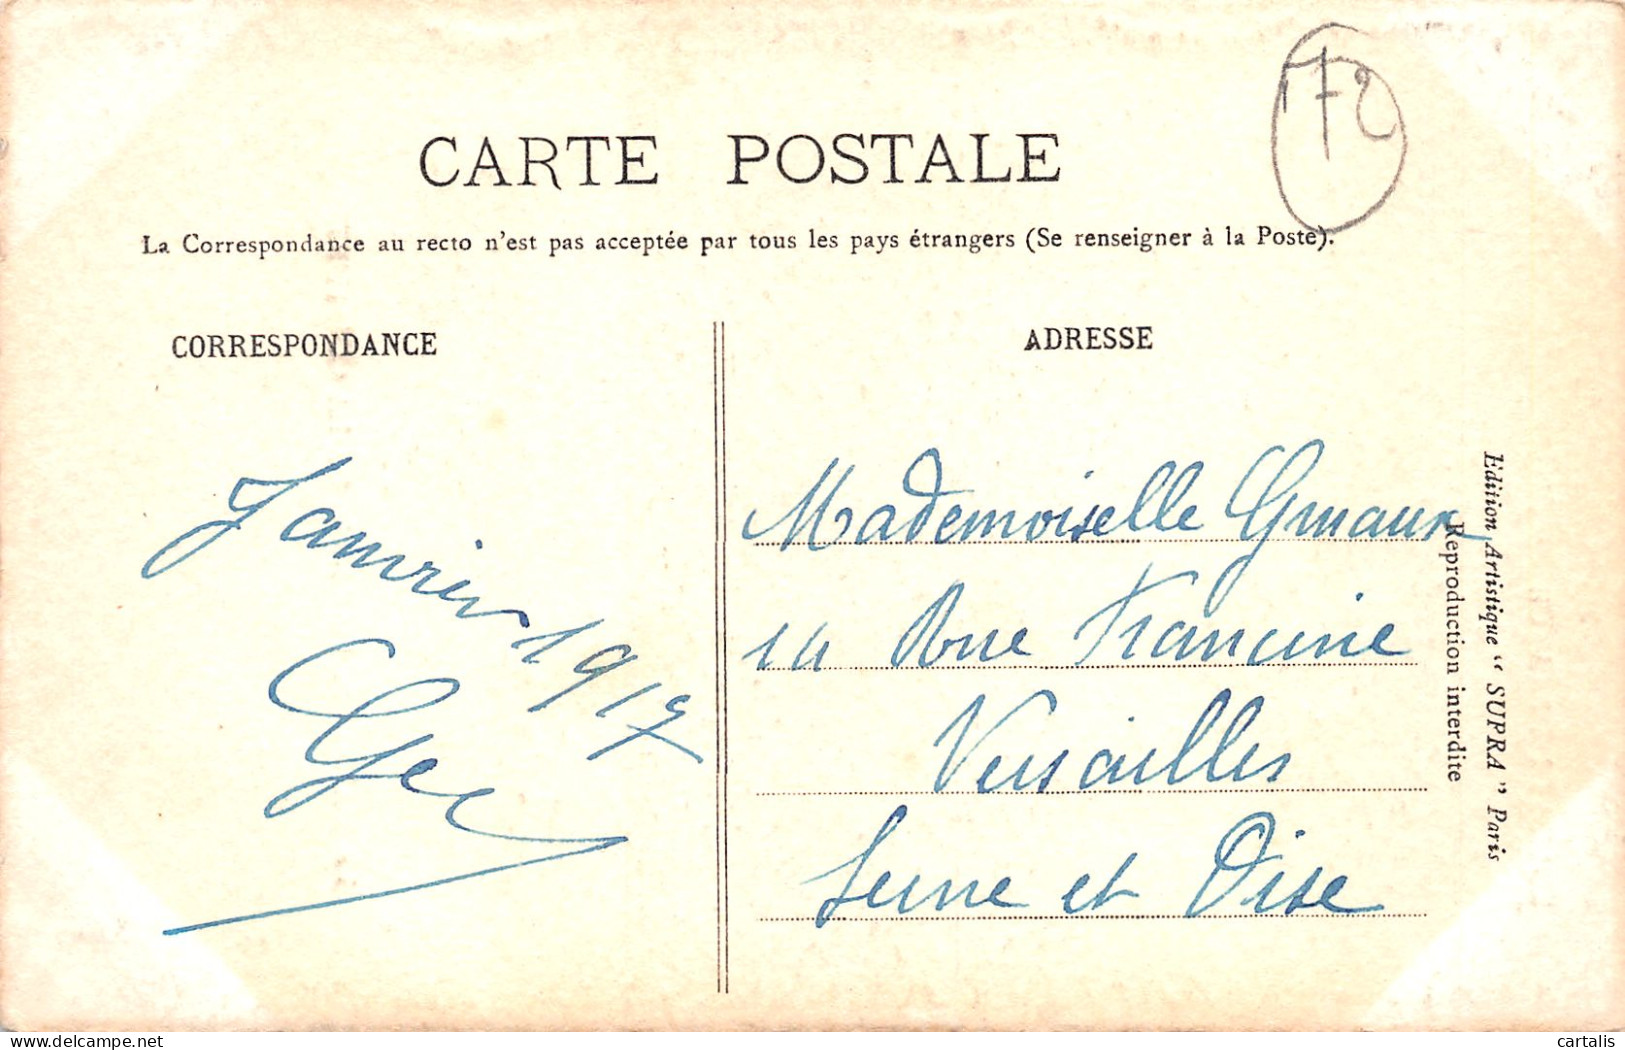 72
CARTE POSTALE
La Correspondance au recto n'est pas acceptée par tous les pays étrangers (Se renseigner à la Poste).
CORRESPONDANCE
Janvier 1917
ADRESSE
Mademoiselle
14 Rue Francine
Versailles
Seine et Oise
Edition Artistique “ SUPRA ” Paris
Reproduction interdite
delcampe.net
cartalis